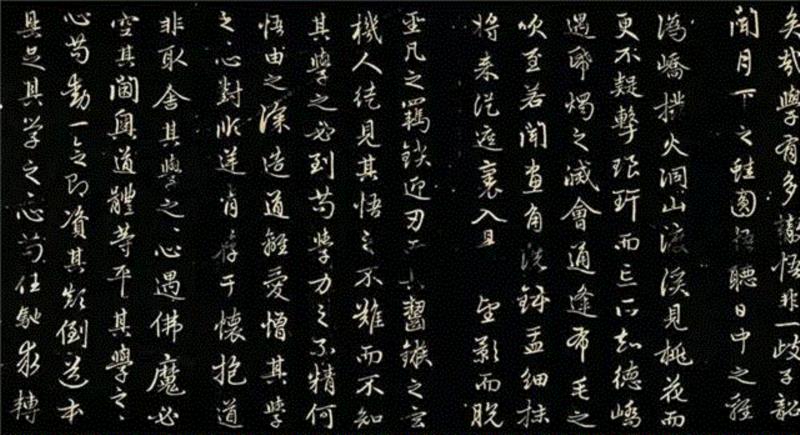 矣哉學有多識悟非一岐子韶
聞月下之蛙圓聽日中之雞
溈嶠撥火洞山渡溪見桃花而
更不疑擊琅玕而忘所知德嶠
遇紙燭之滅會通逢布毛之
吹至若聞畫角洗鉢盂細抹
將來從遮裏入且 望影而脫
聖凡之羈鎖迎刃齧鏃之玄
機人徒見其悟之不難而不知
其學之必到苟學力之不精何
悟由之深造道離愛憎其學
之心對順逆肯存于懷抱道
非取舍其學之心遇佛魔必
空其閫奧道體等平其學之
心苟動一念即資其顛倒道本
具足其学之心苟任馳求轉